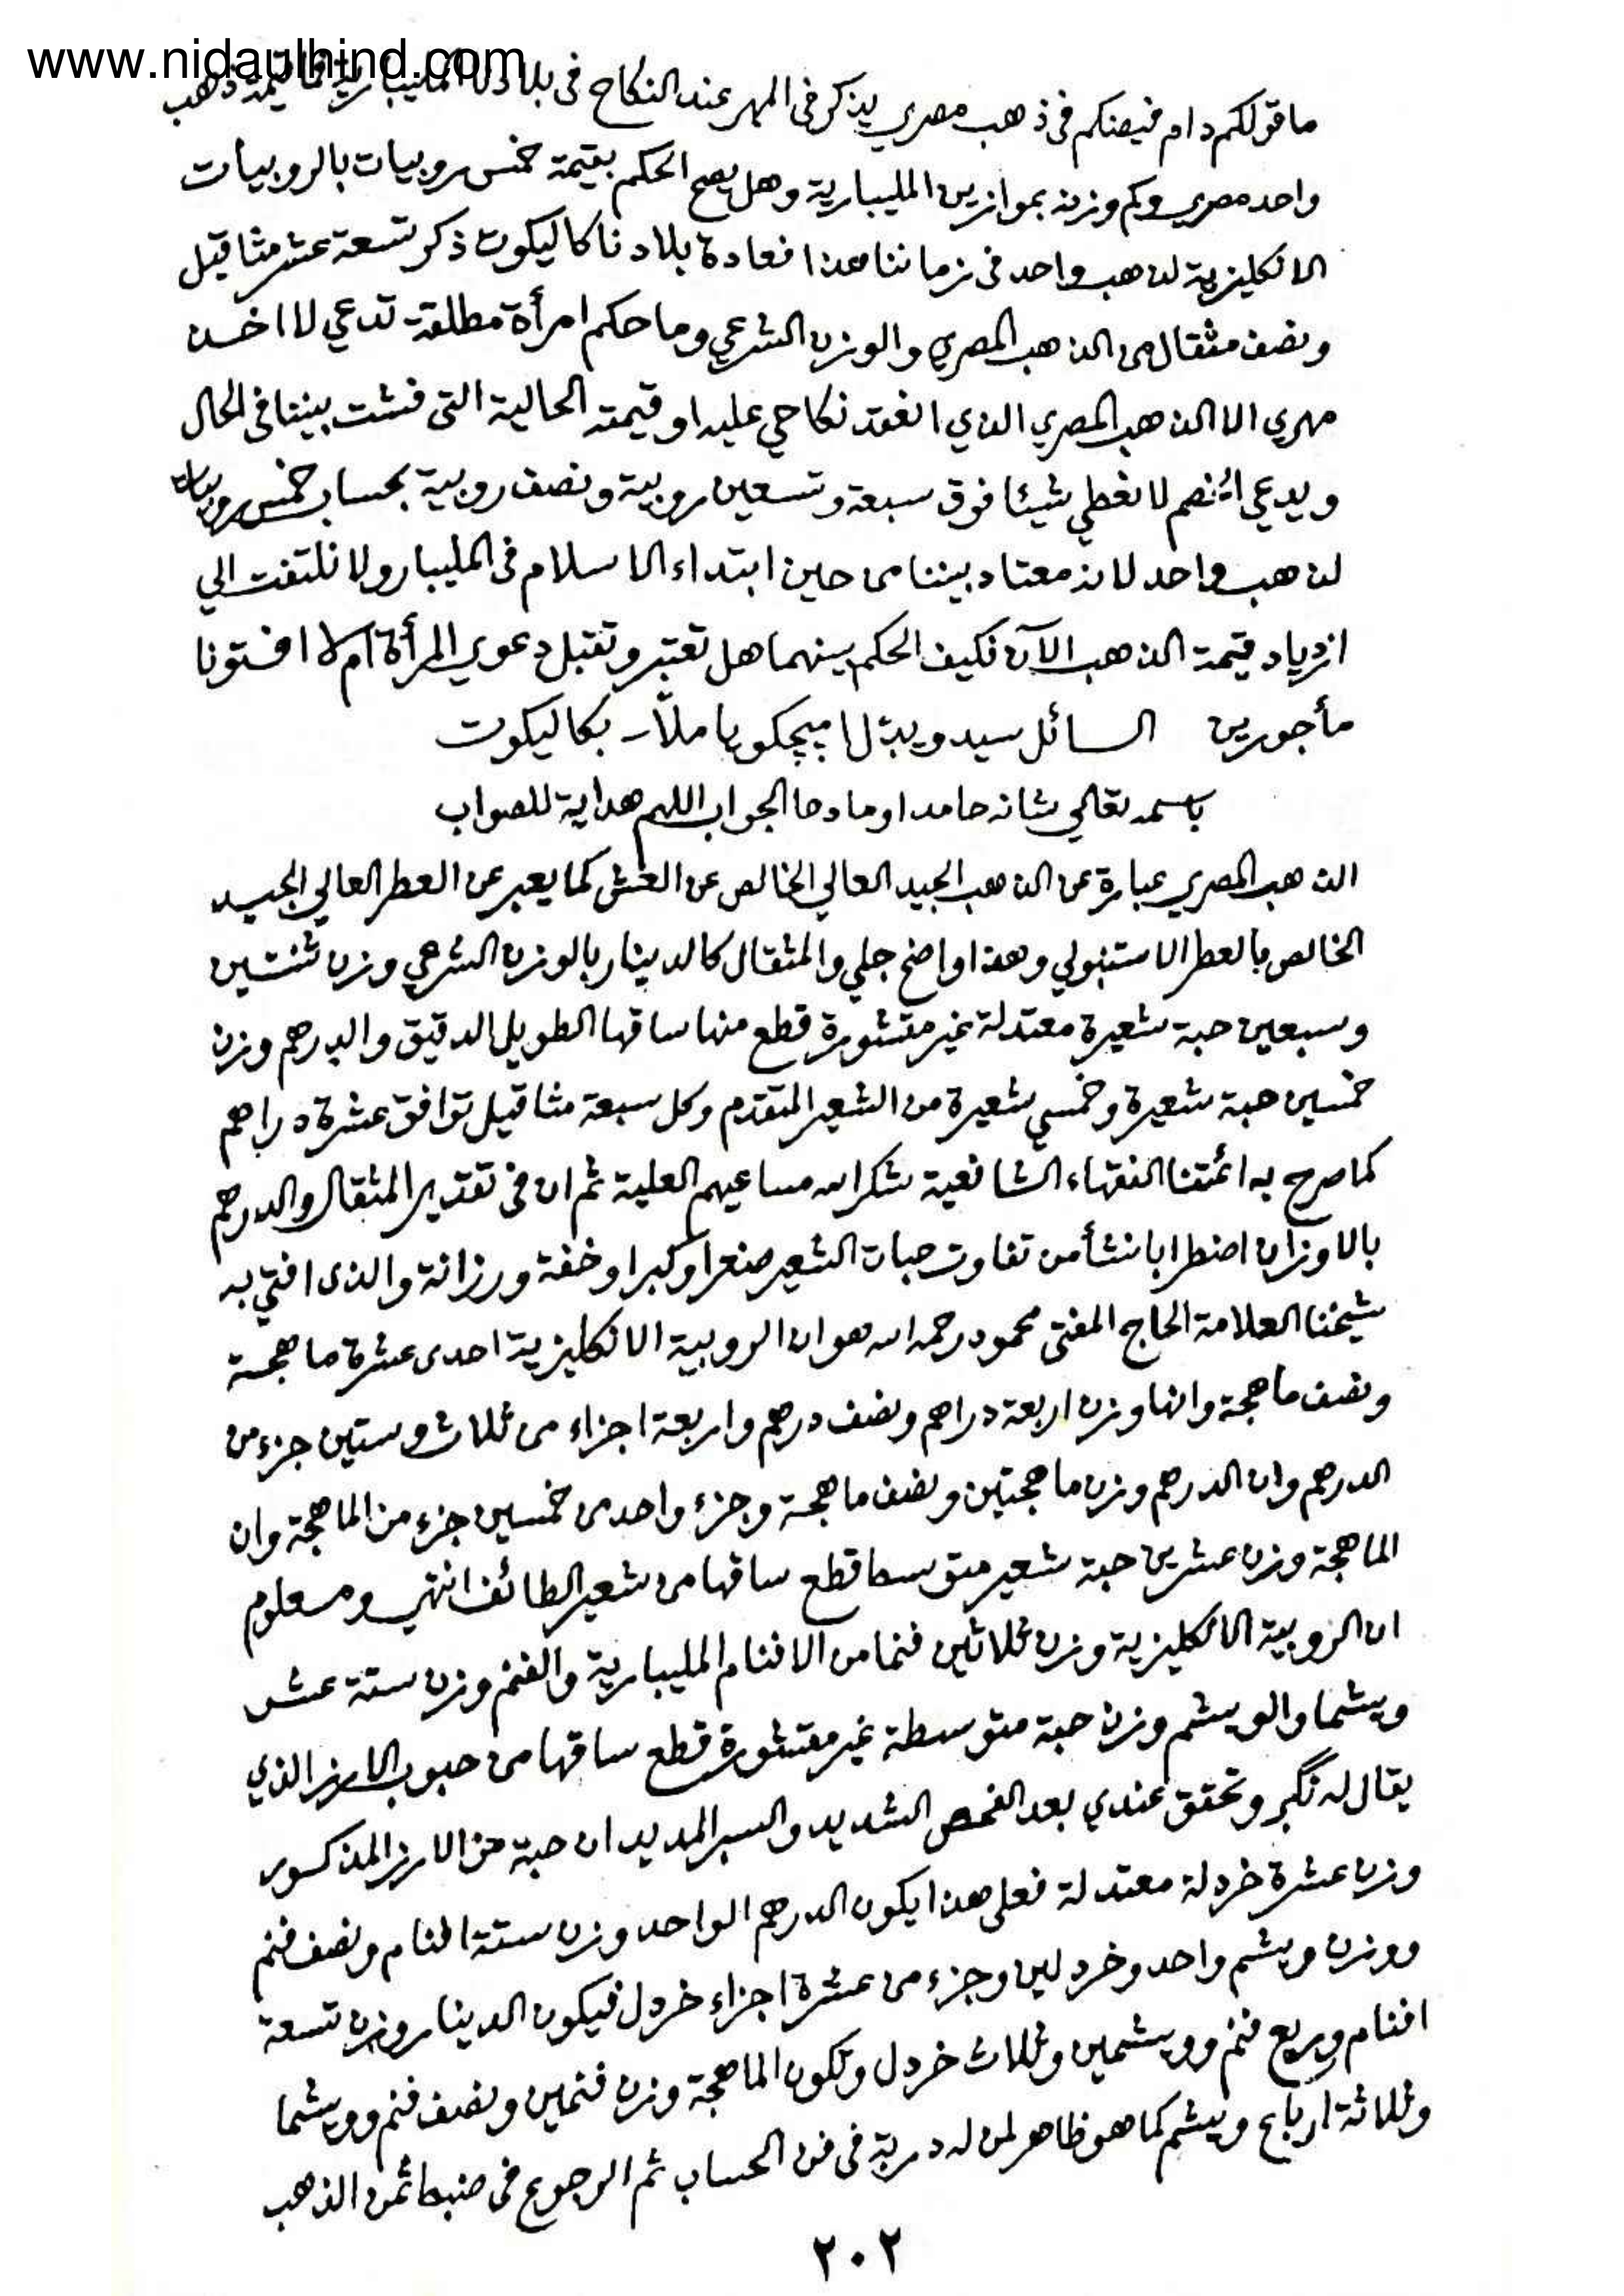 www.nidaulhind.com
ما قولكم دام فيضكم في ذهب مصري يذكر في المهر عند النكاح في بلادنا المليبارية فما قيمة ذهب
واحد مصري وكم وزنه بموازين المليبارية وهل يصح الحكم بقيمة خمس روبيات بالروبيات
الانكليزية لذهب واحد في زماننا هذا فعادة بلادنا كاليكوت ذكر تسعة عشر مثاقيل
ونصف مثقال من الذهب المصري والوزن الشرعي وما حكم امرأة مطلقة تدعي لا اخذ
مهري الا الذهب المصري الذي انعقد نكاحي عليه او قيمته الحالية التي فشت بيننا في الحال
ويدعي الخصم لا نعطي شيئا فوق سبعة وتسعين روبية ونصف روبية بحساب خمس روبيات
لذهب واحد لانه معتاد بيننا من حين ابتداء الاسلام في المليبار ولا نلتفت الي
ازدياد قيمة الذهب الآن فكيف الحكم بينهما هل تعتبر وتقبل دعوي المرأة ام لا افتونا
مأجورين السائل سيد ملّا بكاليكوت
باسمه تعالي شانه حامدا ومادحا الجواب اللهم هداية للصواب
الذهب المصري عبارة عن الذهب الجيد العالي الخالص عن الغش كما يعبر عن العطر العالي الجيد
الخالص بالعطر الاستنبولي وهذا واضح جلي والمثقال كالدينار بالوزن الشرعي وزن ثنتين
وسبعين حبة شعيرة معتدلة غير مقشورة قطع منها ساقها الطويل الدقيق والدرهم وزن
خمسين حبة شعيرة وخمسي شعيرة من الشعير المتقدم وكل سبعة مثاقيل توافق عشرة دراهم
كما صرح به ائمتنا الفقهاء الشافعية شكر الله مساعيهم العلية ثم ان في تقدير المثقال والدرهم
بالاوزان اضطرابا نشأ من تفاوت حبات الشعير صغرا وكبرا وخفة ورزانة والذى افتي به
شيخنا العلامة الحاج المفتى محمود رحمه الله هو ان الروبية الانكليزية احدى عشرة ماهجة
ونصف ماهجة وانها وزن اربعة دراهم ونصف درهم واربعة اجزاء من ثلاث وستين جزء من
الدرهم وان الدرهم وزن ماهجتين ونصف ماهجة وجزء واحد من خمسين جزء من الماهجة وان
الماهجة وزن عشرين حبة شعير متوسط قطع ساقها من شعير الطائف انتهي ومعلوم
ان الروبية الانكليزية وزن ثلاثين فنما من الافنام المليبارية والفنم وزن ستة عشر
ويشما والويشم وزن حبة متوسطة غير مقشورة قطع ساقها من حبوب الارز الذي
يقال له وتحقق عندي بعد الفحص الشديد والسبر المديد ان حبة من الارز المذكور
وزن عشرة خردلة معتدلة فعلى هذا يكون الدرهم الواحد وزن ستة افنام ونصف فنم
ووزن ويشم واحد وخردلين وجزء من عشرة اجزاء خردل فيكون الدينار وزن تسعة
افنام وربع فنم وويشمين وثلاث خردل وتكون الماهجة وزن فنمين ونصف فنم وويشما
وثلاثة ارباع ويشم كما هو ظاهر لمن له دربة في فن الحساب ثم الرجوع في ضبط ثمن الذهب
٢٠٢